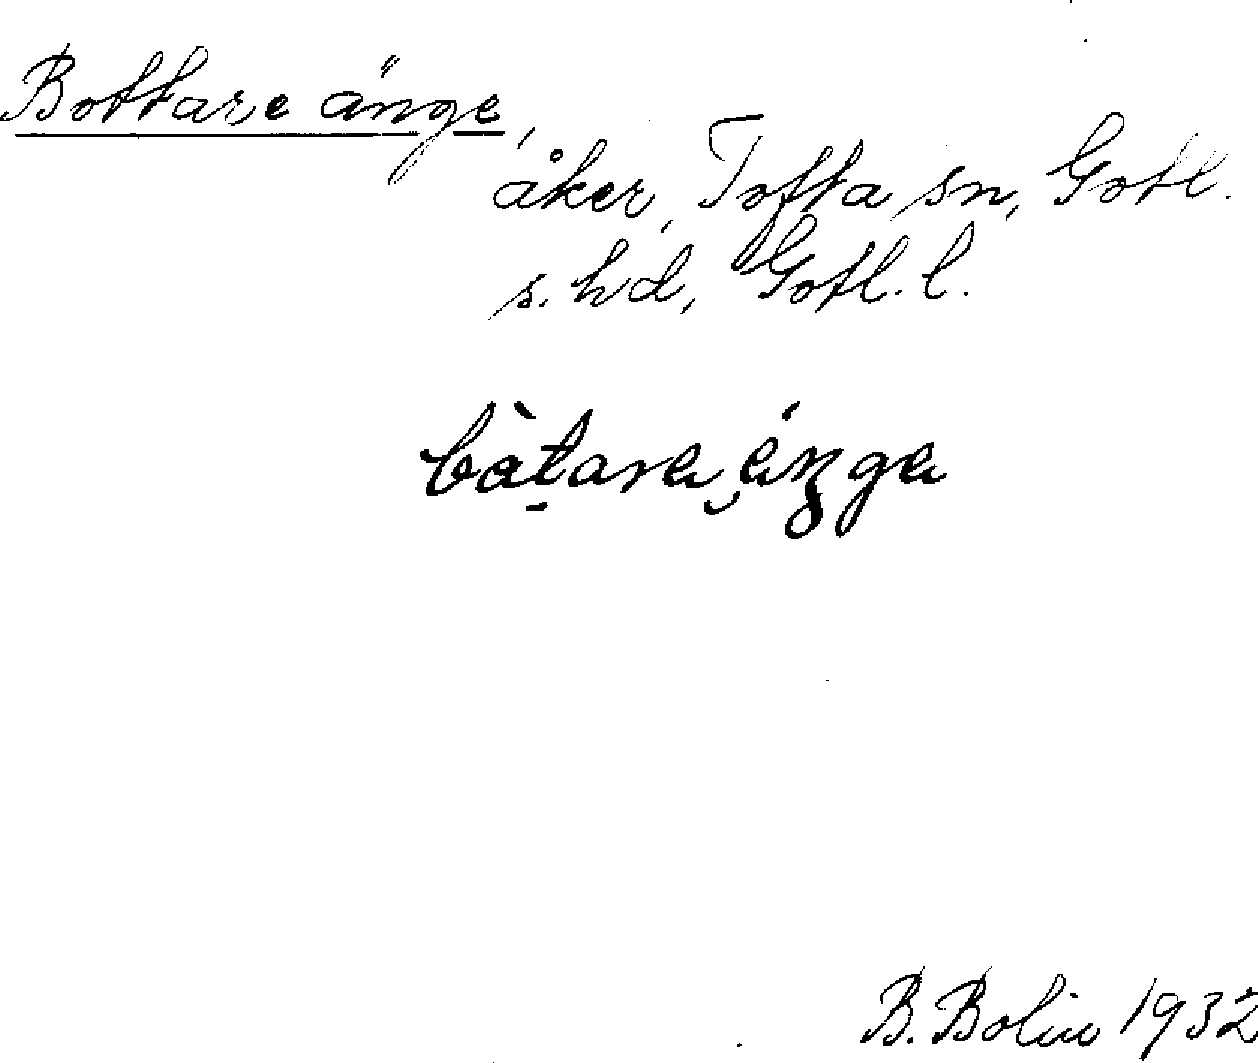 Bottare änge,
åker, Tofta sn, Gotl.
s. hd, Gotl. l.
B. Bolin 1932